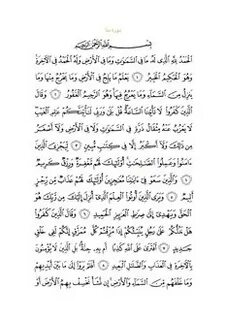 سورة سبأ
بسم الله الرحمن الرحيم
الحمد لله الذي له ما في السموت وما في الأرض وله الحمد في الأخرة
وهو الحكيم الخبير ١ يعلم ما يلج في الأرض وما يخرج منها وما
ينزل من السماء وما يعرج فيها وهو الرحيم الغفور ٢ وقال
الذين كفروا لا تأتينا الساعة قل بلى وربي لتأتينكم علم الغيب
لا يعزب عنه مثقال ذرة في السموت ولا في الأرض ولا أصغر
من ذلك ولا أكبر إلا في كتب مبين ٣ ليجزي الذين
ءامنوا وعملوا الصلحت أولئك لهم مغفرة ورزق كريم
٤ والذين سعو في ءايتنا معجزين أولئك لهم عذاب من رجز
أليم ٥ ويرى الذين أوتوا العلم الذي أنزل إليك من ربك هو
الحق ويهدي إلى صرط العزيز الحميد ٦ وقال الذين كفروا
هل ندلكم على رجل ينبئكم إذا مزقتم كل ممزق إنكم لفي خلق
جديد ٧ أفترى على الله كذبا أم به جنة بل الذين لا يؤمنون
بالأخرة في العذاب والضلل البعيد ٨ أفلم يروا إلى ما بين أيديهم
وما خلفهم من السماء والأرض إن نشأ نخسف بهم الأرض أو